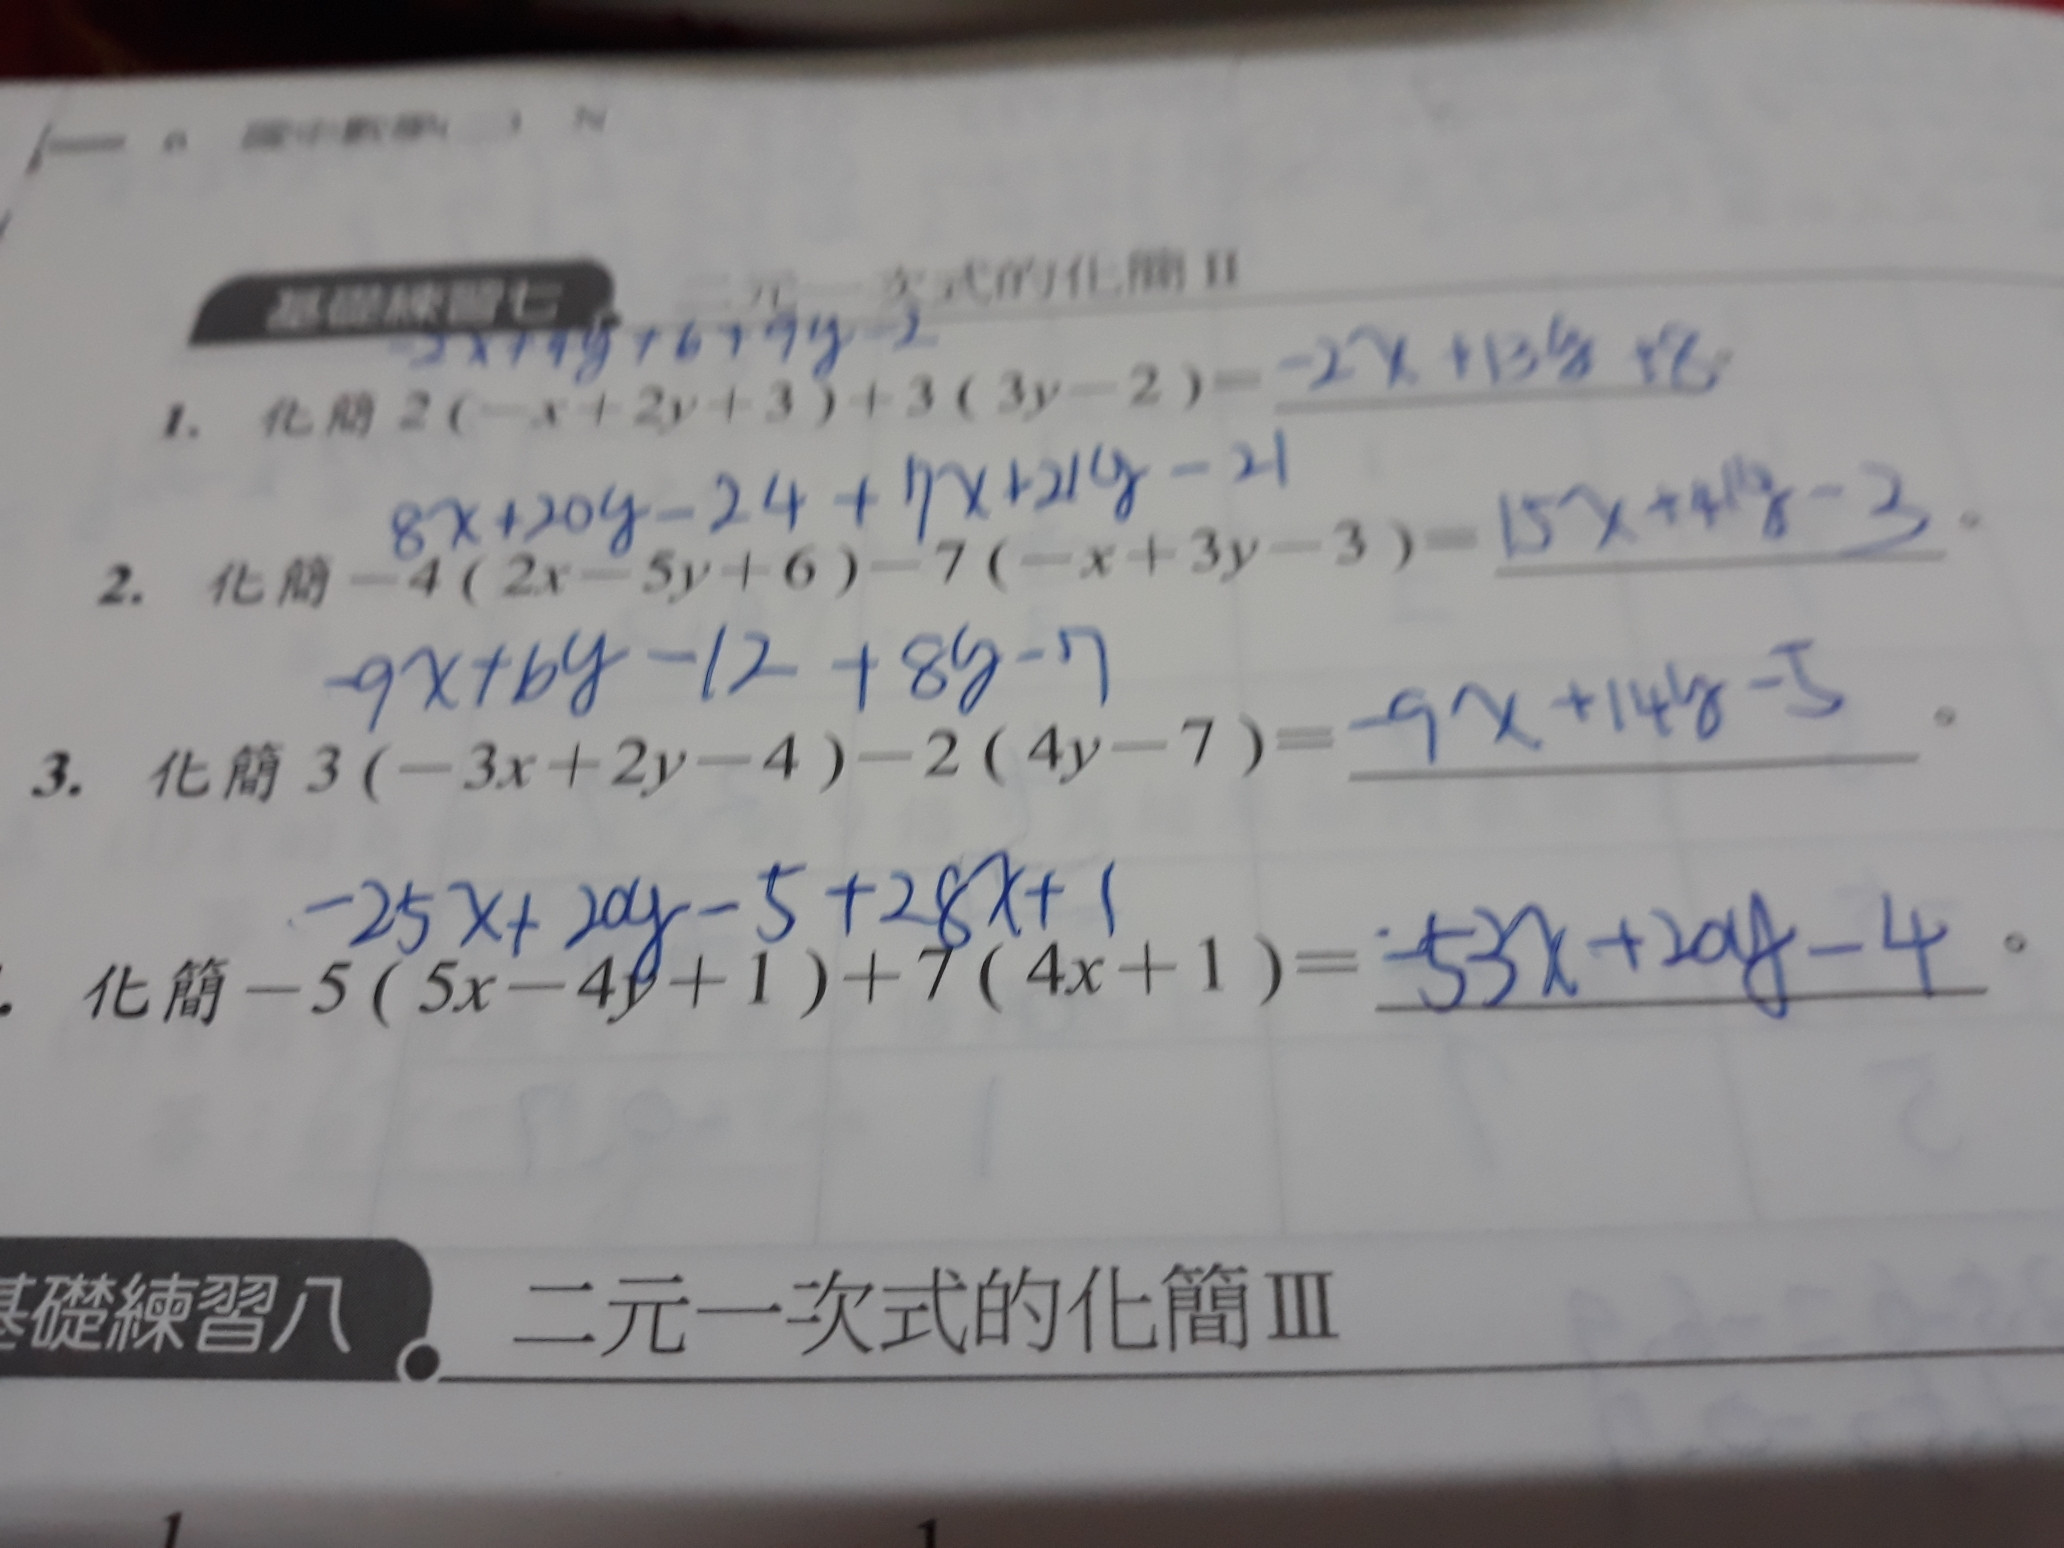 基礎練習七 二元一次式的化簡 II
-2x+4y+6+9y-2
1. 化簡 2(-x+2y+3)+3(3y-2)= -2x+13y+8
8x+20y-24+7x+21y-21
2. 化簡 -4(2x-5y+6)-7(-x+3y-3)= 15x+41y-3。
-9x+6y-12+8y-7
3. 化簡 3(-3x+2y-4)-2(4y-7)= -9x+14y-5。
-25x+20y-5+28x+1
. 化簡 -5(5x-4y+1)+7(4x+1)= -53x+20y-4。
基礎練習八 二元一次式的化簡 III
1 1